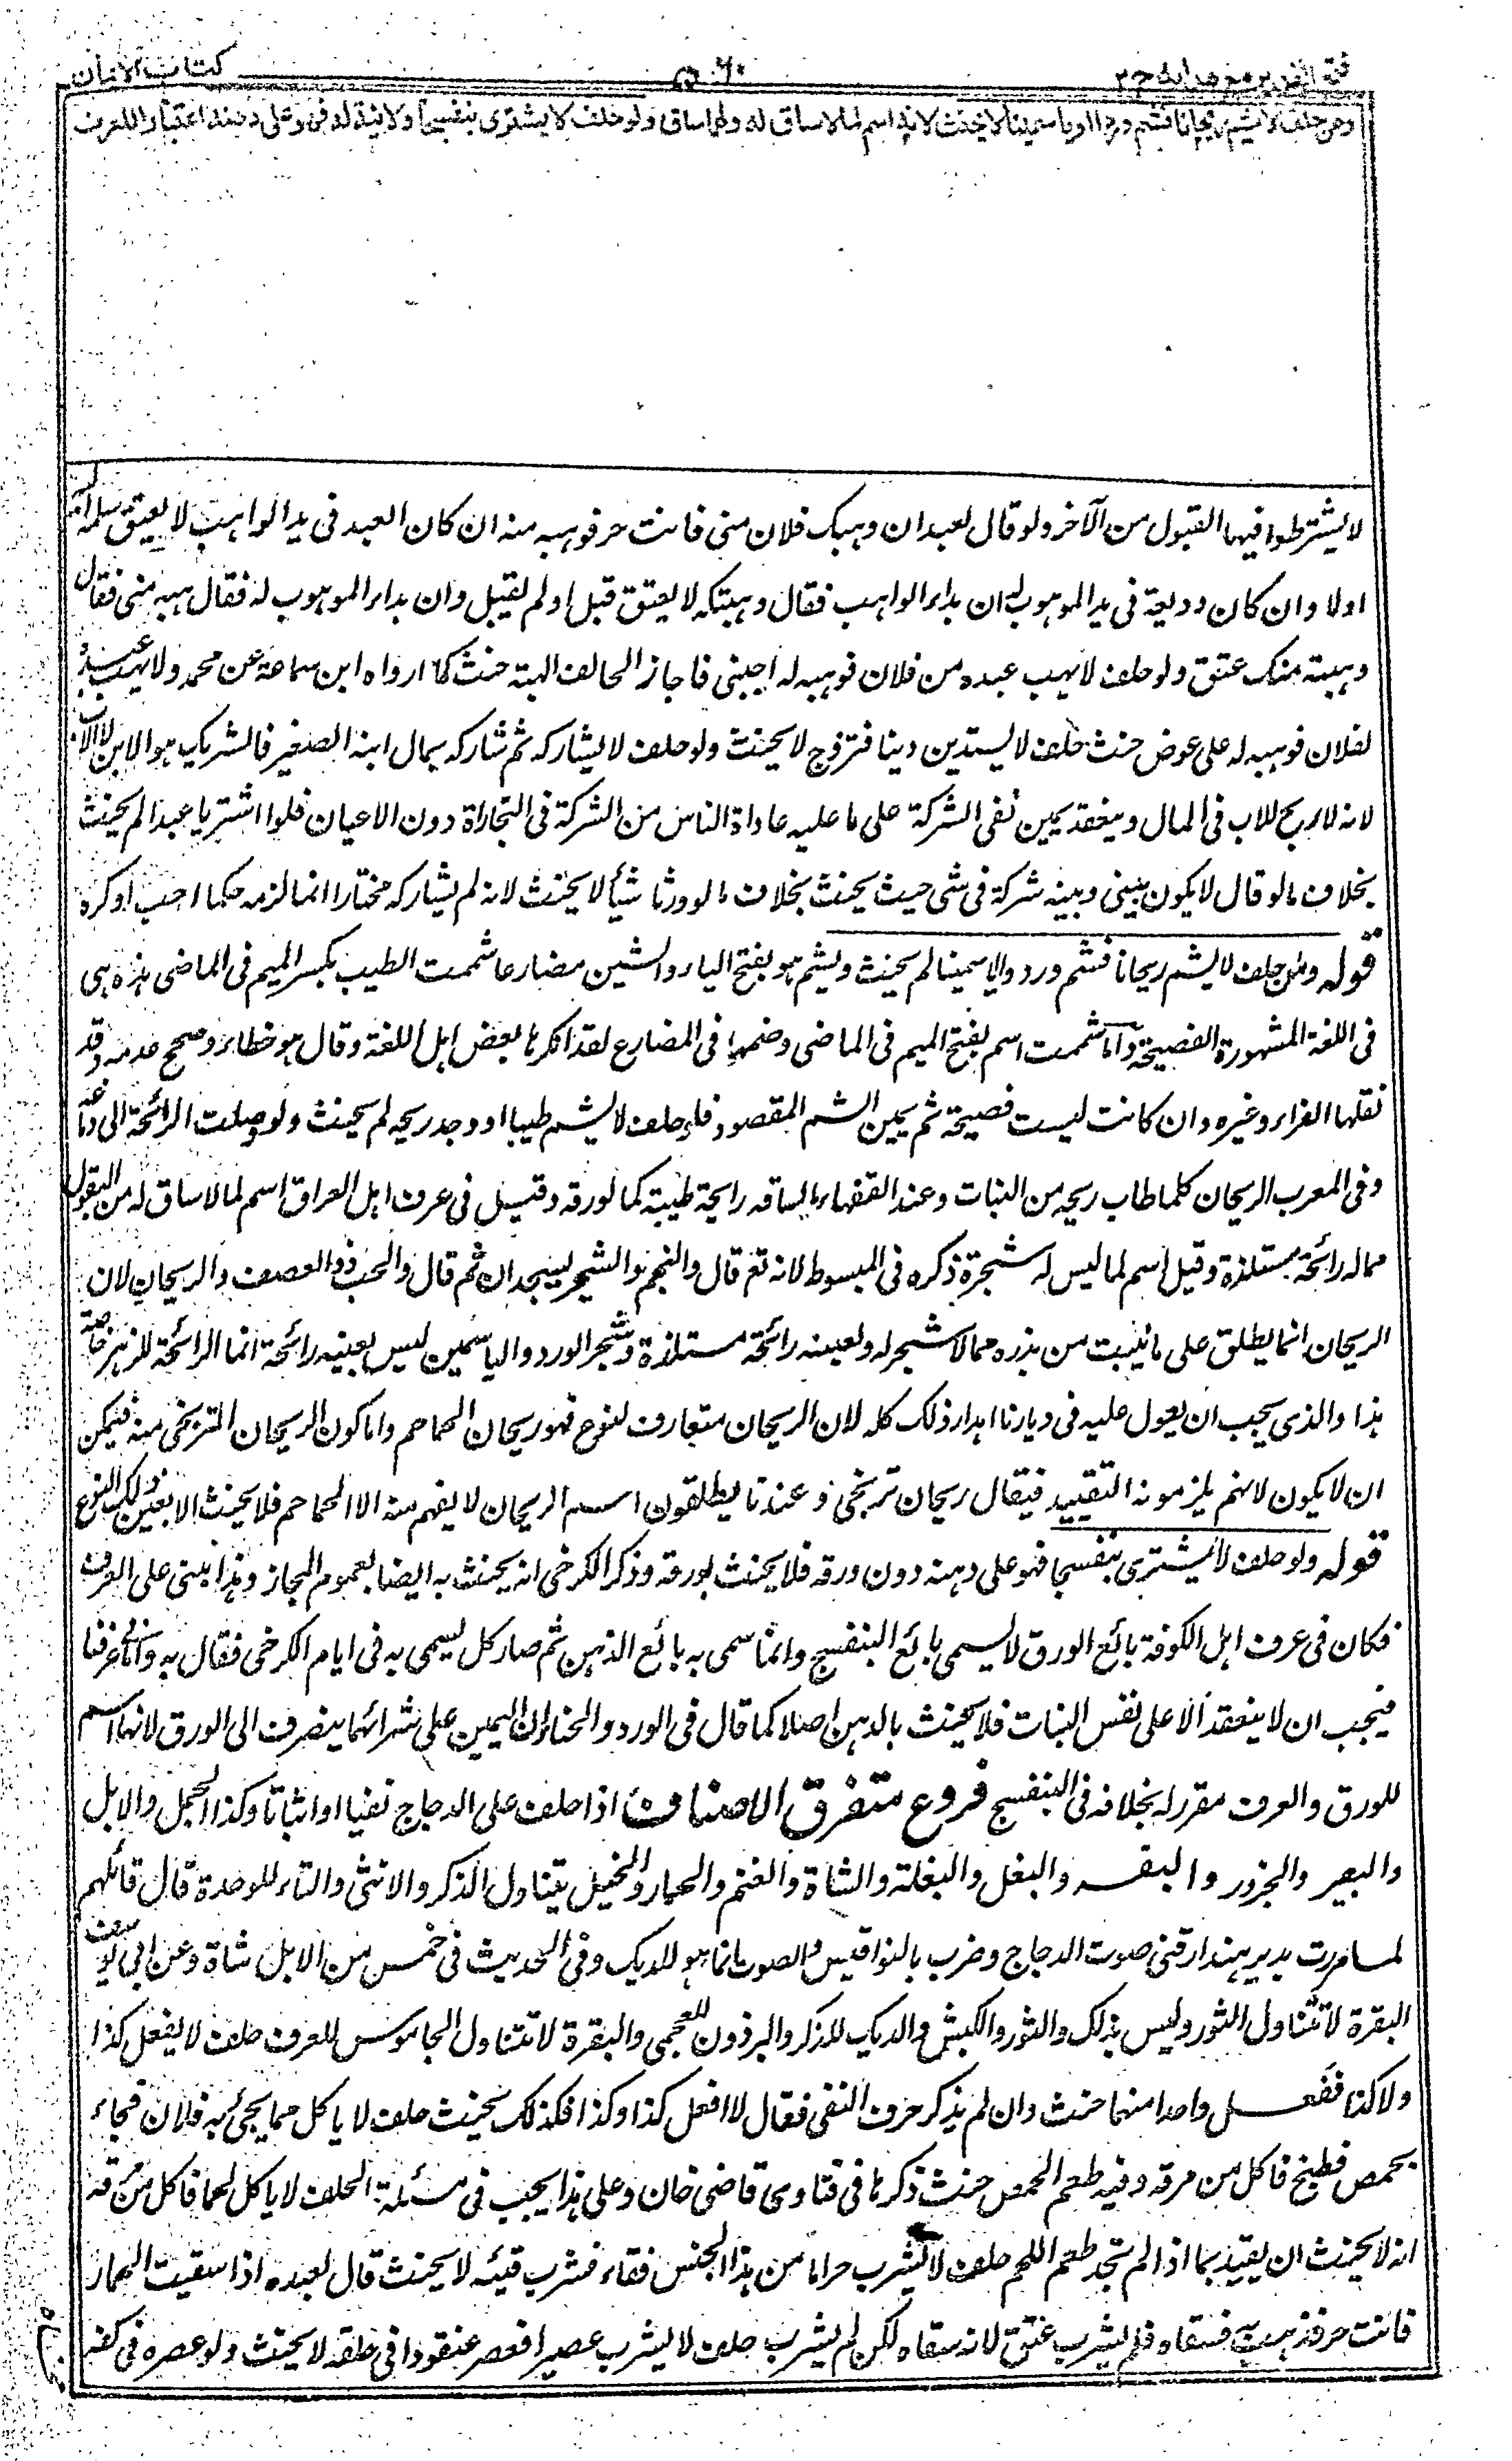 فتح القدير مع هدايه ج ٢
كتاب الايمان
ومن حلف لا يشم ريحانا فشم وردا او ياسمينا لا يحنث لانه اسم لما لا ساق له ولهما ساق ولو حلف لا يشتري بنفسجا ولا نية له فهو على دهنه اعتبارا للعرف
لا يشترطوا فيها القبول من الآخر ولو قال لعبد ان وهبك فلان منى فانت حر فوهبه منه ان كان العبد فى يد الواهب لا يعتق سلمه له
اولا وان كان وديعة فى يد الموهوب له ان بدا الواهب فقال وهبتكه لا يعتق قبل او لم يقبل وان بدا الموهوب له فقال هبه منى فقال
وهبته منك عتق ولو حلف لا يهب عبده من فلان فوهبه له اجنبى فاجاز الحالف الهبة حنث كما رواه ابن سماعة عن محمد ولا يهب عبده
لفلان فوهبه له على عوض حنث حلف لا يستدين دينا فتزوج لا يحنث ولو حلف لا يشاركه ثم شاركه بمال ابنه الصغير فالشريك هو الابن لا الاب
لانه لا ربح للاب فى المال وينعقد يمين نفى الشركة على ما عليه عاداة الناس من الشركة فى التجاراة دون الاعيان فلو اشتريا عبدا لم يحنث
بخلاف ما لو قال لا يكون بينى وبينه شركة فى شى حيث يحنث بخلاف ما لو ورثا شيأ لا يحنث لانه لم يشاركه مختارا انما لزمه حكما احب او كره
قوله ومن حلف لا يشم ريحانا فشم وردا والا ياسمينا لم يحنث ويشم هو بفتح الياء والشين مضارعا شممت الطيب بكسر الميم فى الماضى هذه هى
فى اللغة المشهورة الفصيحة واما شممت اسم بفتح الميم فى الماضى وضمها فى المضارع لقد انكرها بعض اهل اللغة وقال هو خطاء وصحح عدمه وقد
نقلها الفراء وغيره وان كانت ليست فصيحة ثم يمين الشم المقصود فلو حلف لا يشم طيبا او وجد ريحه لم يحنث ولو وصلت الرائحة الى دماغه
وفى المغرب الريحان كلما طاب ريحه من النبات وعند الفقهاء ما لساقه رايحة طيبة كما لورقه وقيل فى عرف اهل العراق اسم لما لا ساق له من البقول
مما له رائحة مستلذة وقيل اسم لما ليس له شجرة ذكره فى المبسوط لانه تع قال والنجم والشجر يسجدان ثم قال والحب ذو العصف والريحان لان
الريحان انما يطلق على ما ينبت من بذره مما لا شجر له ولعينه رائحة مستلذة وشجر الورد والياسمين ليس لعينه رائحة انما الرائحة للزهر خاصة
هذا والذى يجب ان يعول عليه فى ديارنا اهدار ذلك كله لان الريحان متعارف لنوع فهو ريحان الحماحم واما كون الريحان الترنجى منه فيمكن
ان لا يكون لانهم يلزمونه التقييد فيقال ريحان ترنجى وعندنا يطلقون اسم الريحان لا يفهم منه الا الحماحم فلا يحنث الا بعين ذلك النوع
قوله ولو حلف لا يشترى بنفسجا فهو على دهنه دون ورقه فلا يحنث بورقه وذكر الكرخى انه يحنث به ايضا لعموم المجاز وهذا يبنى على العرف
فكان فى عرف اهل الكوفة بائع الورق لا يسمى بائع البنفسج وانما سمى به بائع الدهن ثم صار كل يسمى به فى ايام الكرخى فقال به واما فى عرفنا
فيجب ان لا ينعقد الا على نفس النبات فلا يحنث بالدهن اصلا كما قال فى الورد والحناء ان اليمين على شرائهما ينصرف الى الورق لانهما اسم
للورق والعرف مقرر له بخلافه فى البنفسج فروع متفرق الاصناف اذا حلف على الدجاج نفيا او اثباتا وكذا الجمل والابل
والبعير والجزور والبقر والبغل والبغلة والشاة والغنم والحمار والخيل يتناول الذكر والانثى والتاء للوحدة قال قائلهم
لما مررت بدير هند ارقنى صوت الدجاج وضرب بالنواقيس والصوت انما هو للديك وفى الحديث فى خمس من الابل شاة وعن ابى يوسف
البقرة لا تتناول الثور وليس بذلك والثور والكبش والديك للذكر والبرذون للعجمى والبقرة لا تتناول الجاموس للعرف حلف لا يفعل كذا
ولا كذا ففعل واحدا منهما حنث وان لم يذكر حرف النفى فقال لا افعل كذا وكذا فكذلك يحنث حلف لا يأكل مما يجئ به فلان فجاء
بحمص فطبخ فاكل من مرقه وفيه طعم الحمص حنث ذكرها فى فتاوى قاضى خان وعلى هذا يجب فى مسئلة الحلف لا ياكل لحما فاكل من مرقه
انه لا يحنث ان يقيد بما اذا لم تجد طعم اللحم حلف لا يشرب حراما من هذا الجنس فقاء فشرب قيئه لا يحنث قال لعبده اذا سقيت الحمار
فانت حر فذهب به فسقاه فلم يشرب عتق لانه سقاه لكن لم يشرب حلف لا يشرب عصيرا فعصر عنقودا فى حلقه لا يحنث ولو عصره فى كفه